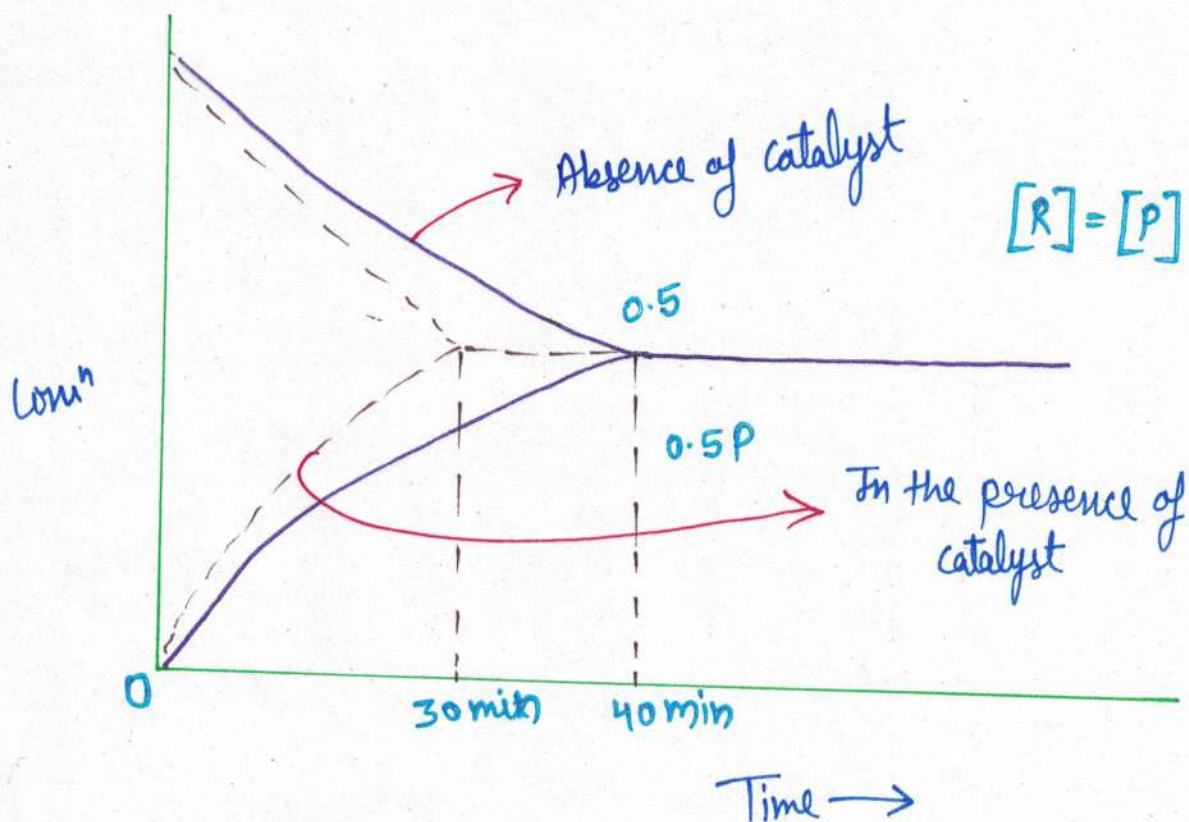 Absence of catalyst
[R] = [P]
0.5
Concⁿ
0.5P
In the presence of
catalyst
0
30min
40min
Time →